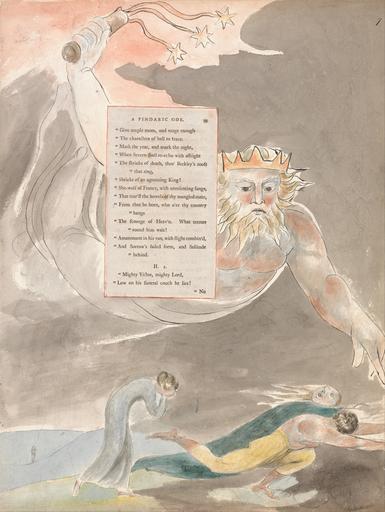 A PINDARIC ODE. 99
" Give ample room, and verge enough
" The characters of hell to trace.
" Mark the year, and mark the night,
" When Severn shall re-echo with affright
" The shrieks of death, thro' Berkley's roofs
" that ring,
" Shrieks of an agonizing King!
" She-wolf of France, with unrelenting fangs,
" That tear'st the bowels of thy mangled mate,
" From thee be born, who o'er thy country
" hangs
" The scourge of Heav'n. What terrors
" round him wait!
" Amazement in his van, with flight combin'd,
" And Sorrow's faded form, and Solitude
" behind.
II. 2.
" Mighty Victor, mighty Lord,
" Low on his funeral couch he lies!
" No